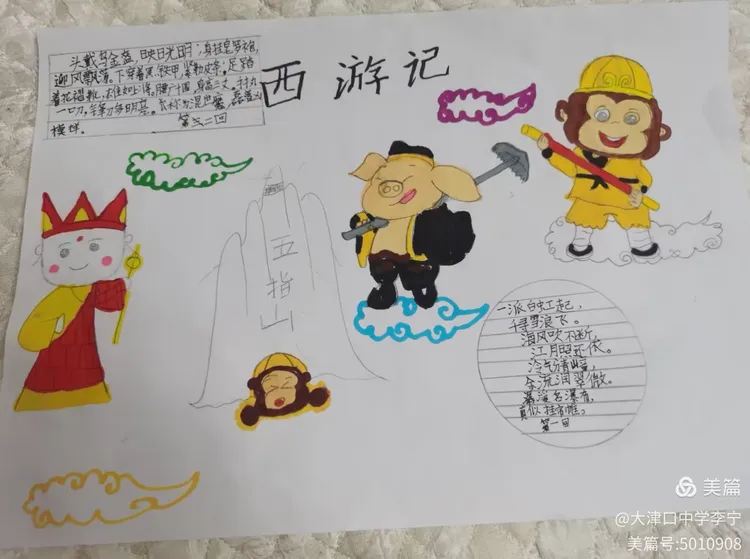 西游记
头戴乌金盔,映日光明;身挂皂罗袍,
迎风飘荡。下穿着黑铁甲,紧勒皮条;足踏
着花褶靴,
腰广十围,身高三丈。手执
一口刀,锋刃多明亮。称为混世魔,磊落凶
模样。
第二回
五指山
一派白虹起,
千寻雪浪飞。
海风吹不断,
江月照还依。
冷气清嶂,
余流润翠微。
潺湲名瀑布,
真似挂帘帷。
第一回
美篇
@大津口中学李宁
美篇号:5010908